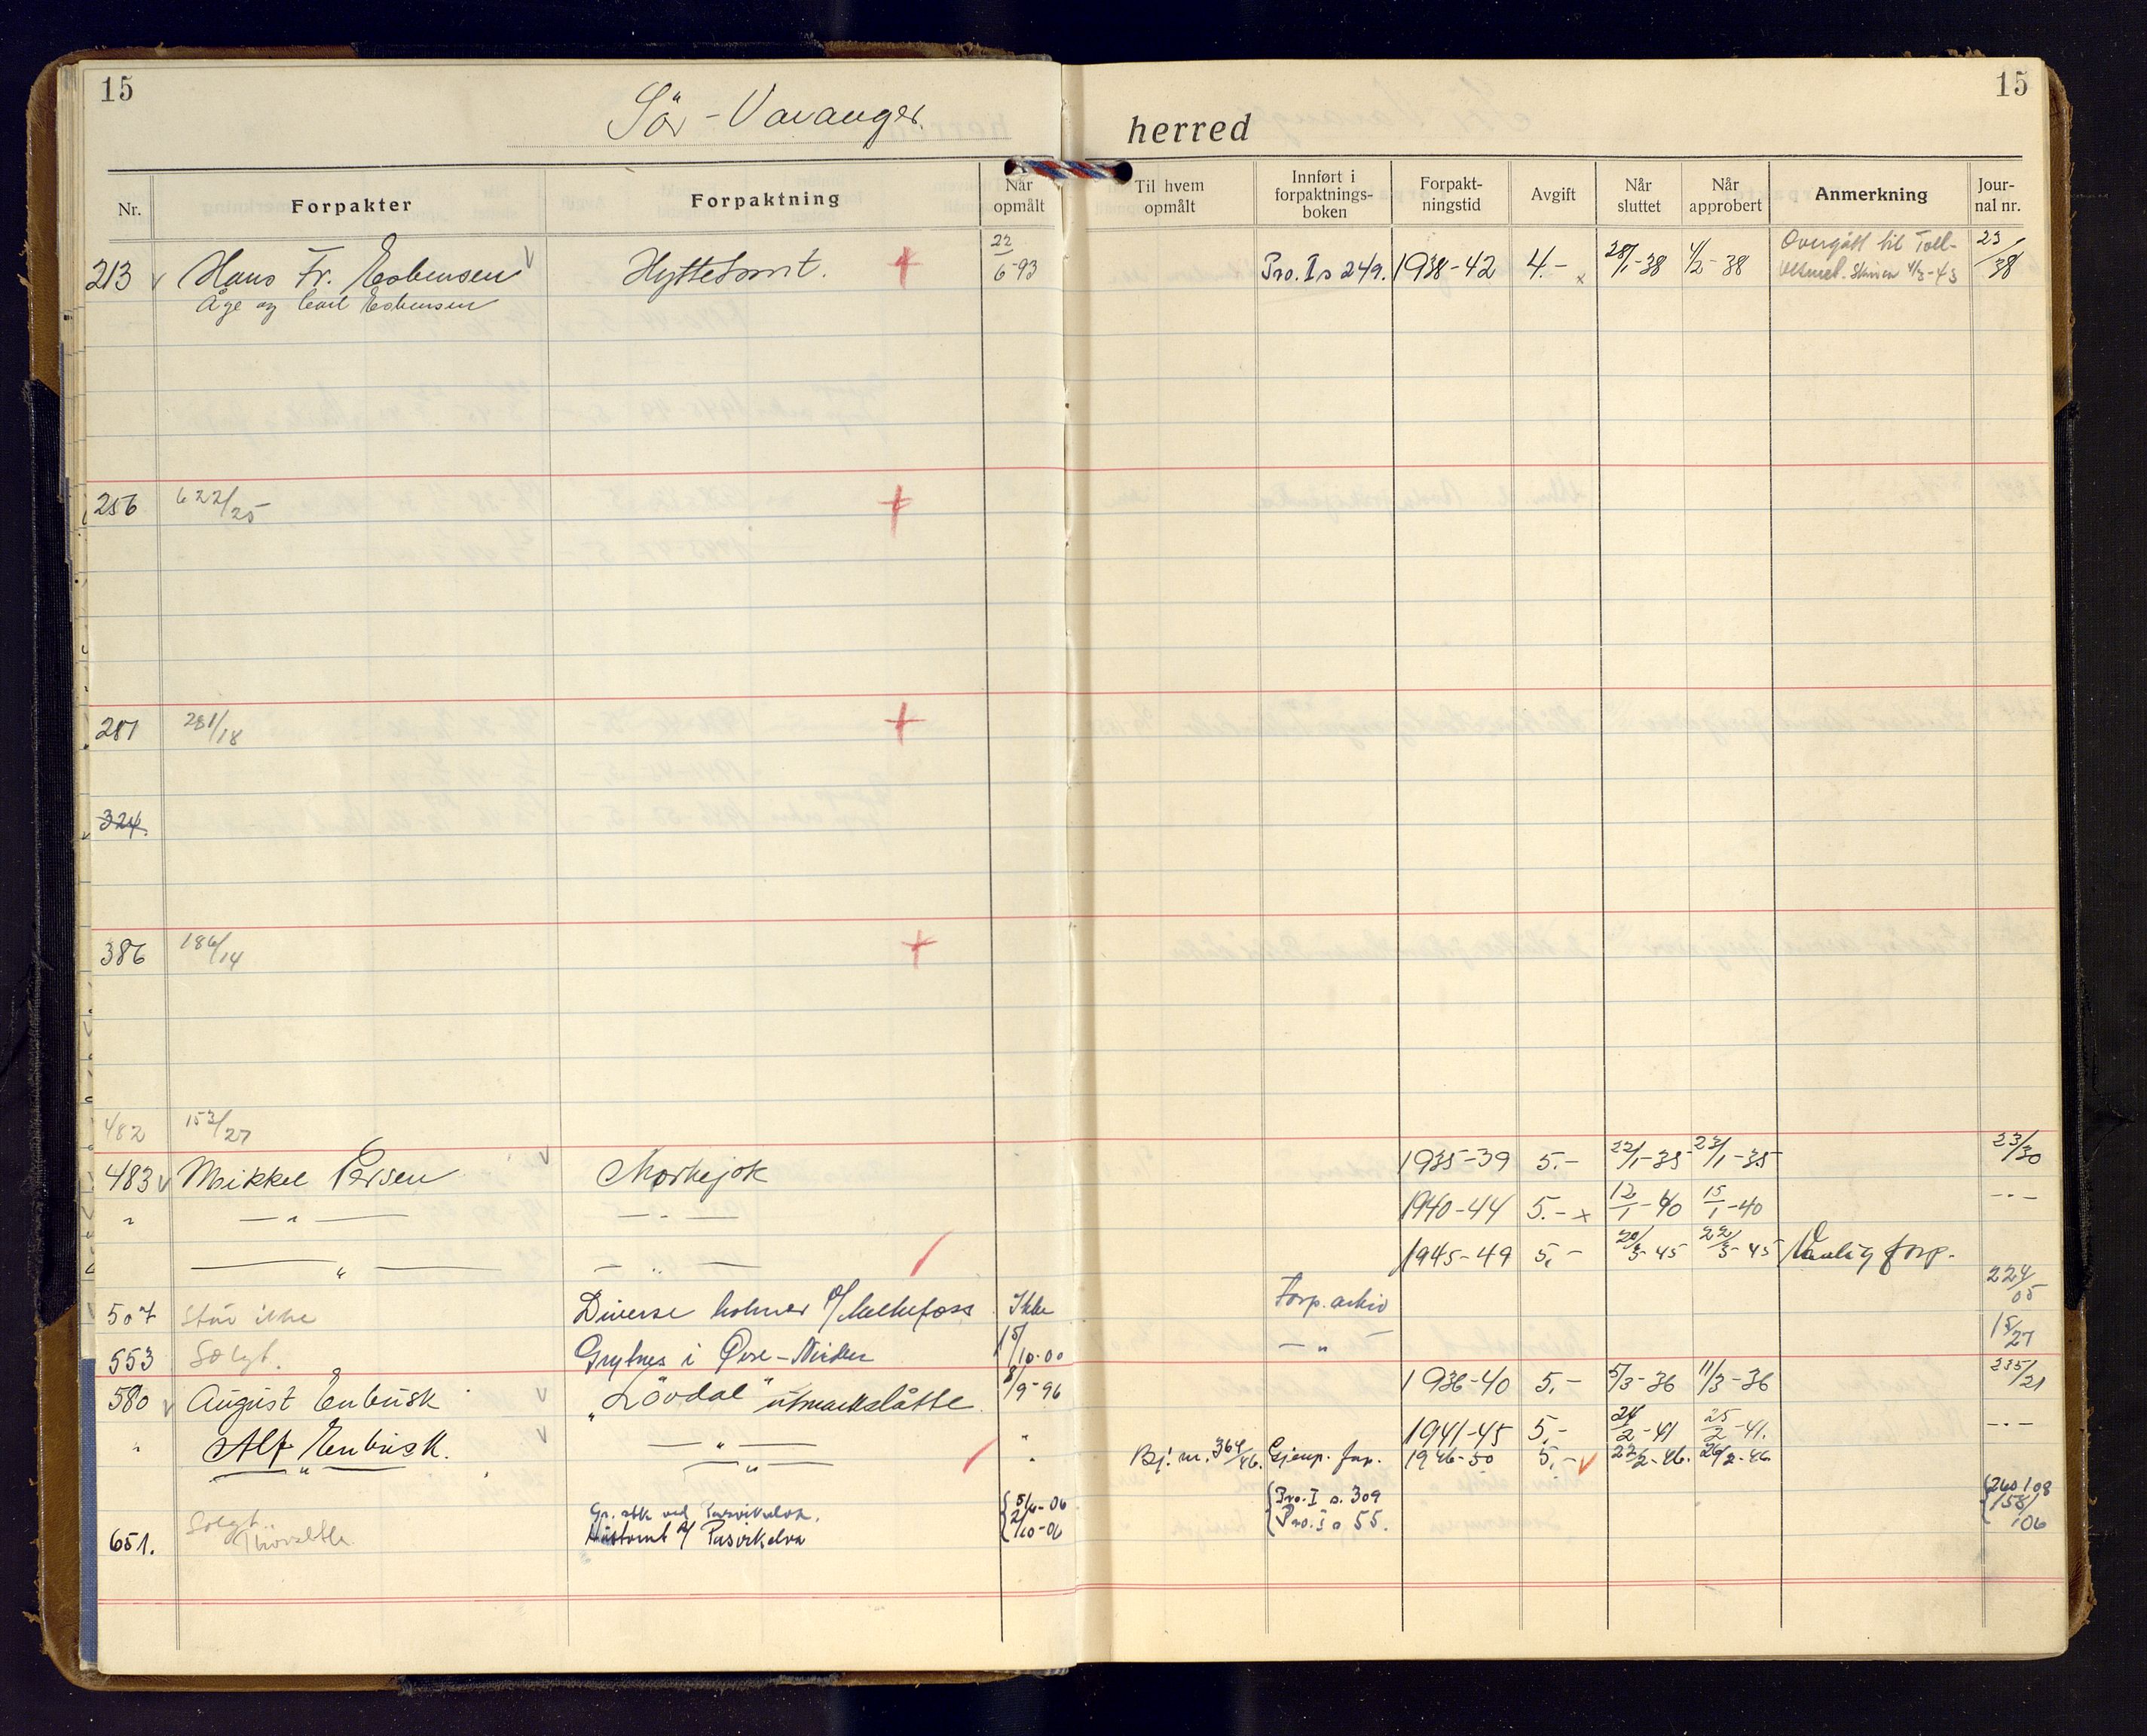 15 15
Sör-Varanger herred
Nr. Forpakter Forpaktning Når opmålt Til hvem opmålt Innført i forpaktnings-boken Forpakt-ningstid Avgift Når sluttet Når approbert Anmerkning Jour-nal nr.
213 Hans Fr. Esbensen Hyttetomt. + 22/6-93 Pro. I s 249. 1938-42 4.- x 28/1-38 4/2-38 Overgått til 23/38
Åge og Carl Esbensen
256 622/25 +
287 281/18 +
324.
386 186/14 +
482 153/27
483 Mikkel Persen Morkejok 1935-39 5.- 22/1-35 23/1-35 23/30
" —"— —"— 1940-44 5.- x 12/1-40 15/1-40 -"-
—"— —"— 1945-49 5,- 20/3-45 22/3-45 Vanlig forp.
507 Står ikke Diverse holmer v/ Melkefoss Ikke Forp. arkiv 224/05
553 Solgt. Grytnes i Øvre- 15/10-00 —"— 15/27
580 August Enbusk "Lövdal" utmarkslåtte 8/9-96 1936-40 5,- 5/3-36 11/3-36 235/21
" Alf Enbusk. —"— " 1941-45 5,- 24/2-41 25/2-41. -"-
—"— —"— " Bj. nr. 364/46. Gjenp. for. 1946-50 5,- 22/2-46. 26/2-46
Solgt. Gr. stk ved Pasvikelva. 5/6-06 Pro. I s. 309 260/08
651. Hustomt v/ Pasvikelva 2/10-06 Pro. I s 55. 158/06